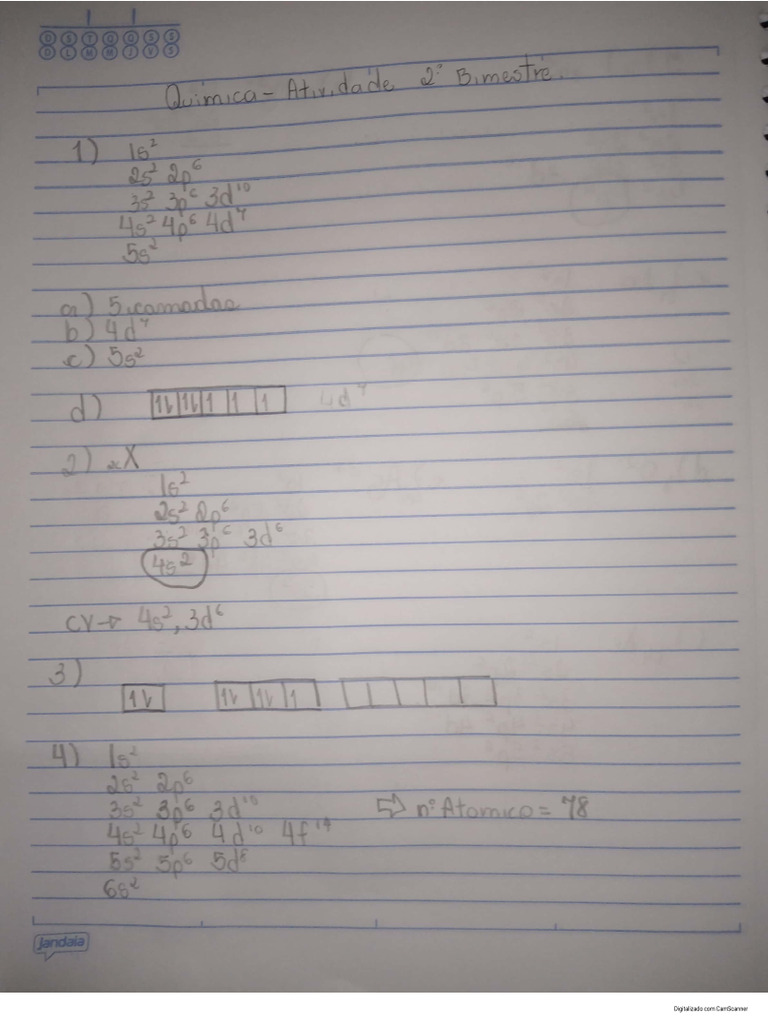 D S T Q Q S S
D L M M J V S
Química - Atividade 2º Bimestre.
1) 1s²
2s² 2p⁶
3s² 3p⁶ 3d¹⁰
4s² 4p⁶ 4d⁷
5s²
a) 5 camadas
b) 4d⁷
c) 5s²
d) 4d⁷
2) X
1s²
2s² 2p⁶
3s² 3p⁶ 3d⁶
4s²
CV → 4s², 3d⁶
3)
4) 1s²
2s² 2p⁶
3s² 3p⁶ 3d¹⁰ ⇨ nº Atomico = 78
4s² 4p⁶ 4d¹⁰ 4f¹⁴
5s² 5p⁶ 5d⁸
6s²
jandaia
Digitalizado com CamScanner